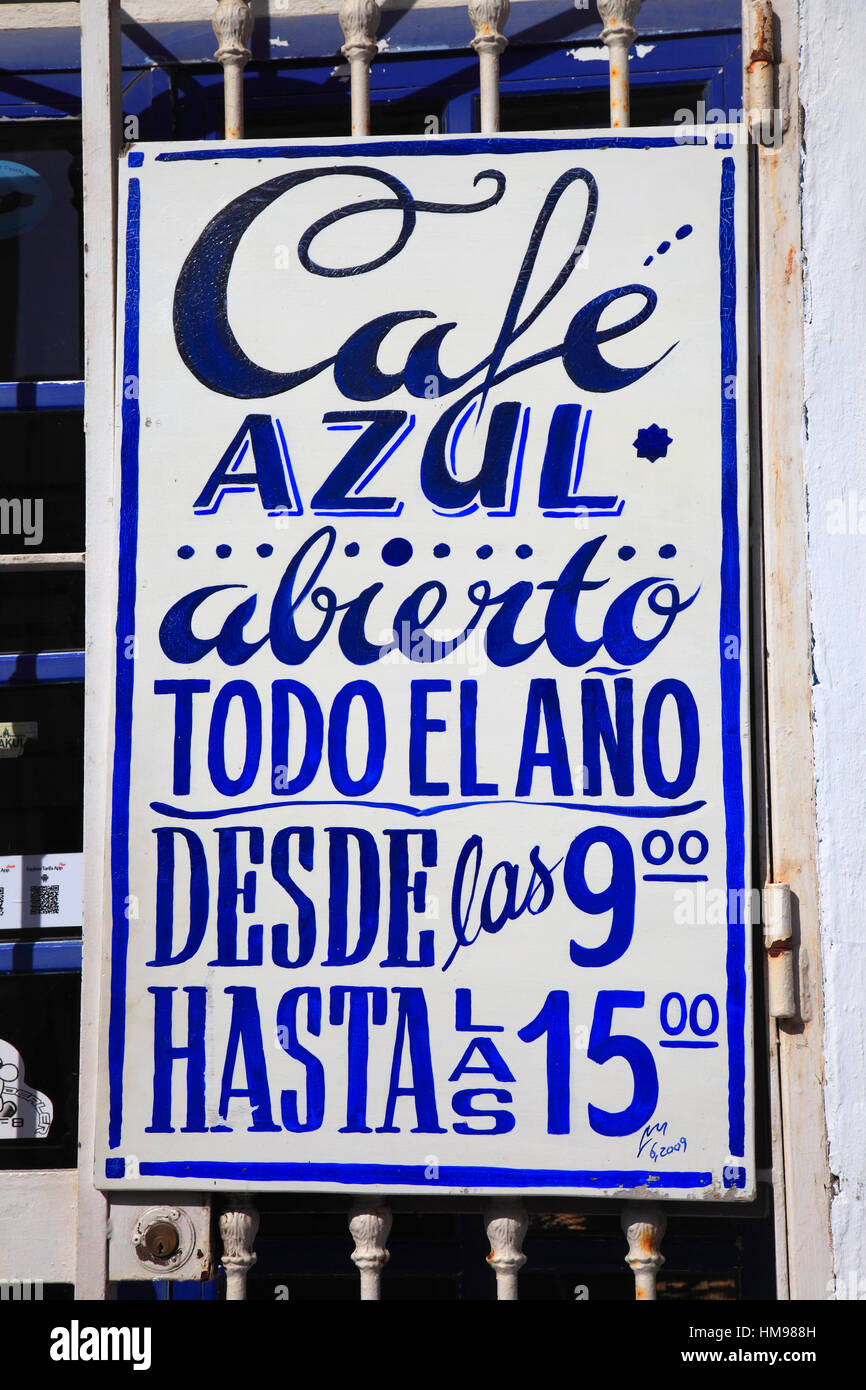 Café
AZUL
abierto
TODO EL AÑO
DESDE las 9 00
HASTA LAS 15 00
6,2009
a
alamy
Image ID: HM988H
www.alamy.com